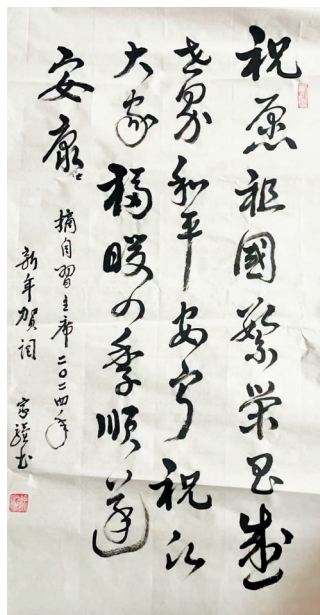 祝愿祖國繁荣昌盛
世界和平安宁祝願
大家福暖四季順遂
安康
摘自習主席二〇二四年
新年賀詞